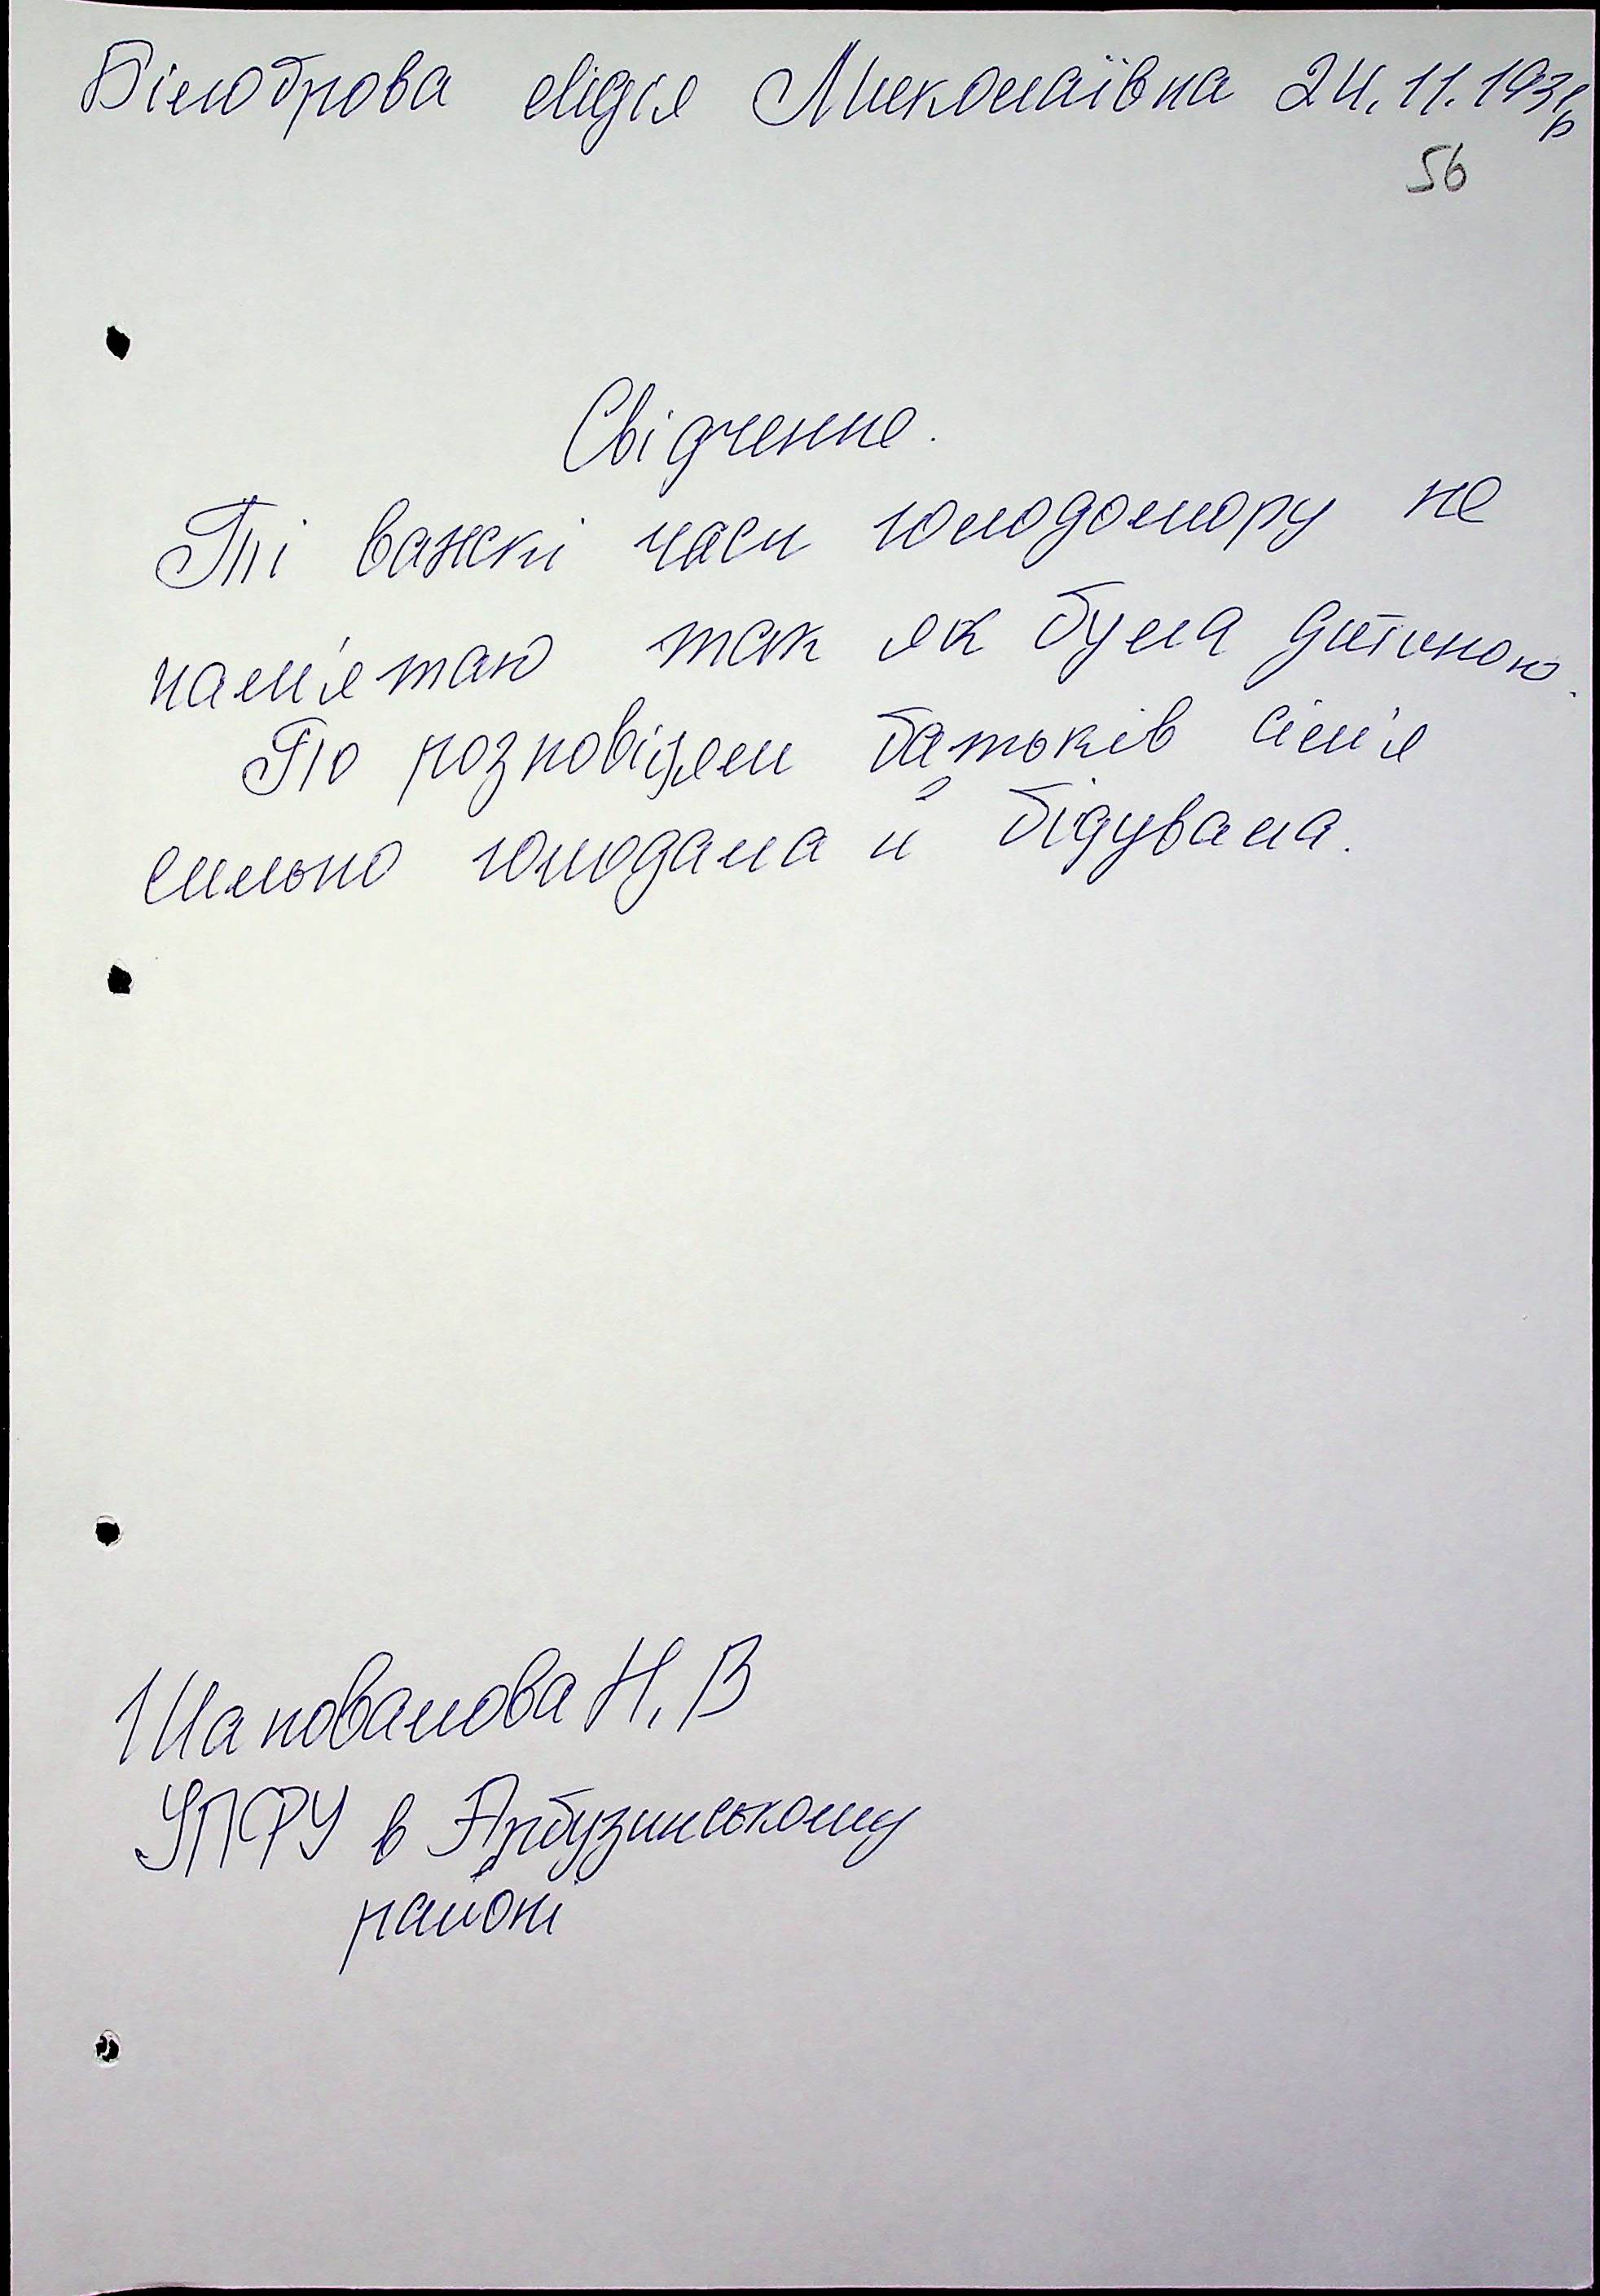 Білоброва Лідія Миколаївна 24.11.193
56
Свідчення.
Ті важкі часи голодомору не
пам'ятаю так як була дитиною.
По розповідям батьків сім'я
сильно голодала й бідувала.
Шаповалова Н.В
УПФУ в Арбузинському
районі